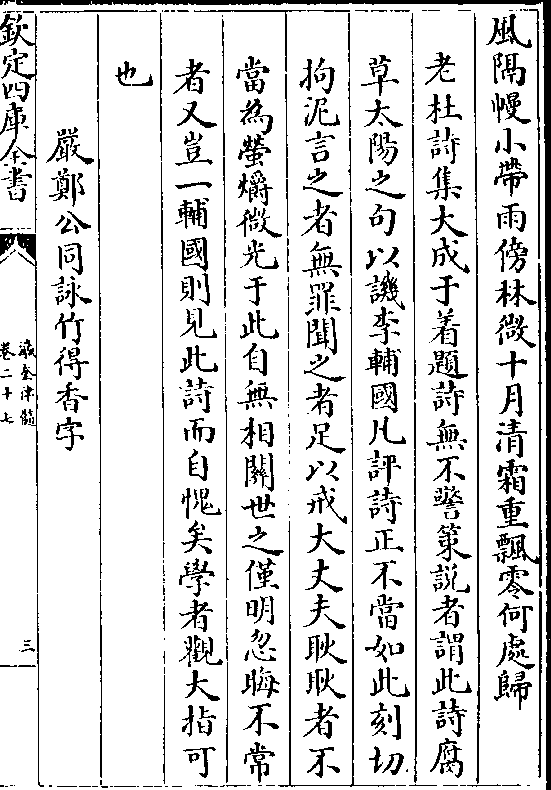 風隔幔小帶雨傍林微十月清霜重飄零何處歸
老杜詩集大成于着題詩無不警策説者謂此詩腐
草太陽之句以譏李輔國凡評詩正不當如此刻切
拘泥言之者無罪聞之者足以戒大丈夫耿耿者不
當為螢爝微光于此自無相關世之僅明忽晦不常
者又豈一輔國則見此詩而自愧矣學者觀大指可
也
嚴鄭公同詠竹得香字
欽定四庫全書
瀛奎律髓
卷二十七
三